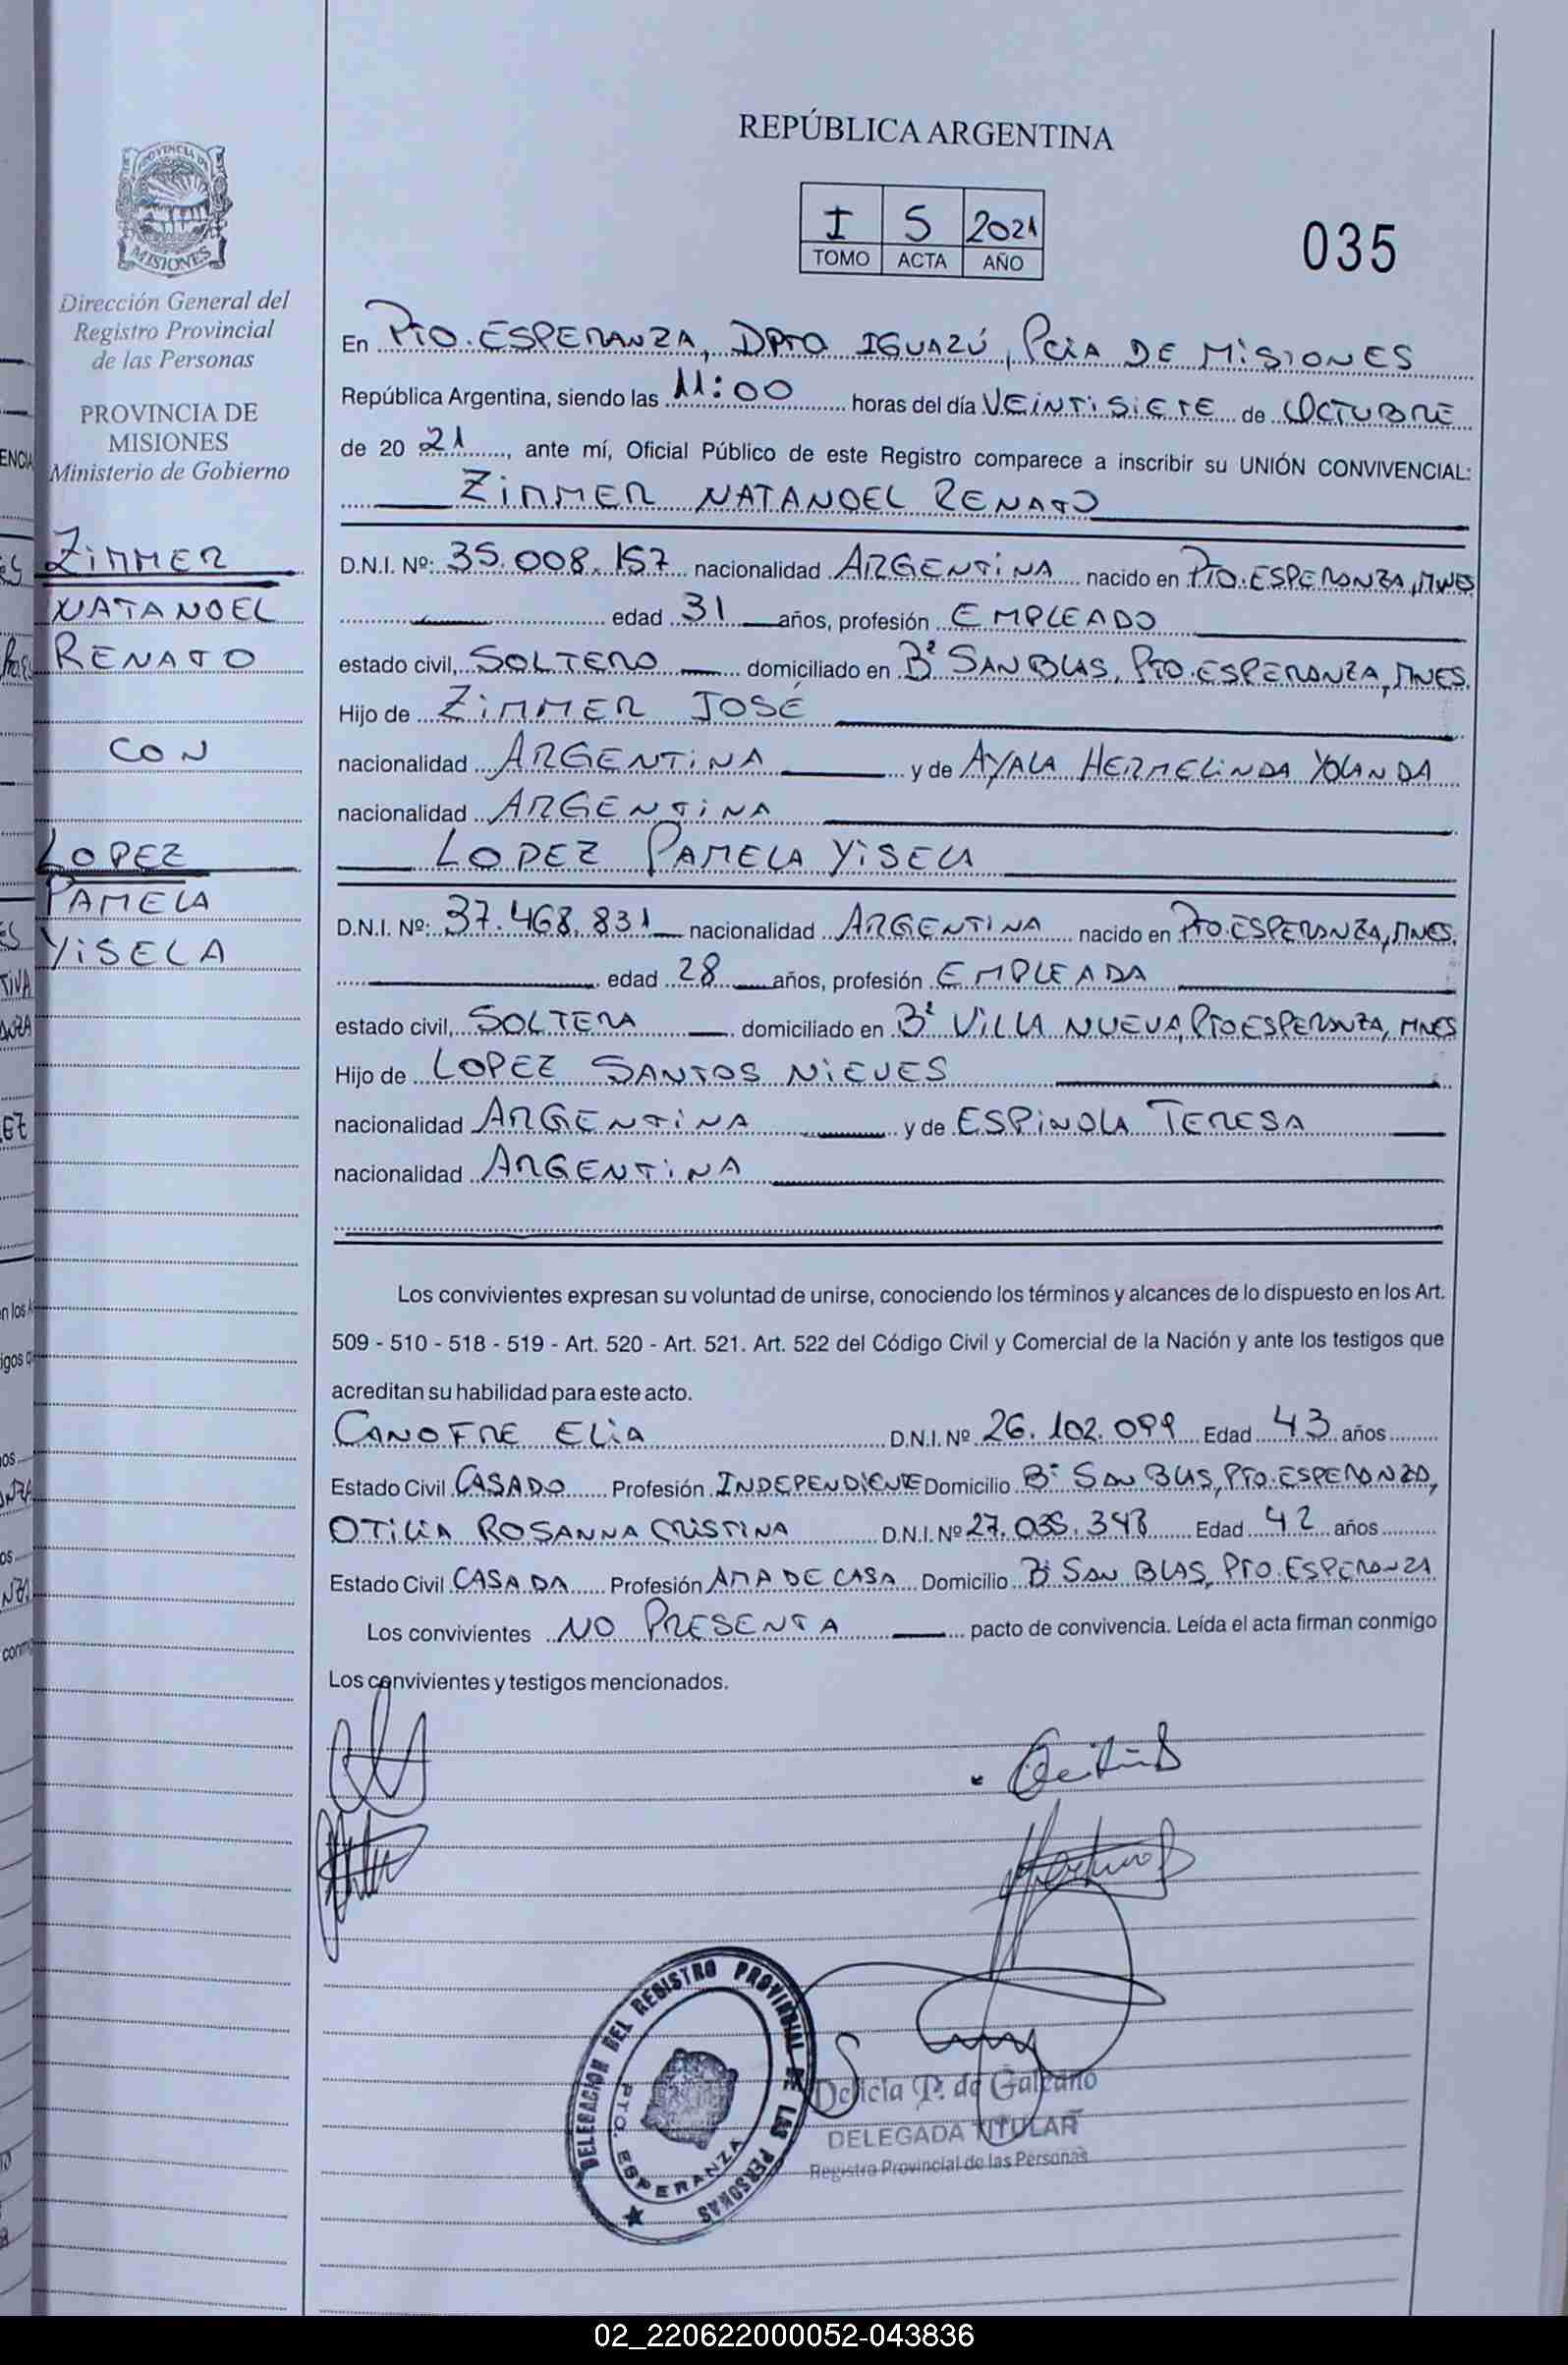 REPÚBLICA ARGENTINA
I 5 2021
TOMO ACTA AÑO
035
PROVINCIA DE
MISIONES
Dirección General del
Registro Provincial
de las Personas
PROVINCIA DE
MISIONES
Ministerio de Gobierno
ZIMMER
NATANOEL
RENATO
CON
LOPEZ
PAMELA
YISELA
En PTO. ESPERANZA, DPTO IGUAZÚ, PCIA DE MISIONES
República Argentina, siendo las 11:00 horas del día VEINTISIETE de OCTUBRE
de 2021, ante mí, Oficial Público de este Registro comparece a inscribir su UNIÓN CONVIVENCIAL:
ZIMMER NATANOEL RENATO
D.N.I. Nº: 35.008.157 nacionalidad ARGENTINA nacido en PTO. ESPERANZA, MNES
edad 31 años, profesión EMPLEADO
estado civil, SOLTERO domiciliado en Bº SAN BLAS, PTO. ESPERANZA, MNES.
Hijo de ZIMMER JOSÉ
nacionalidad ARGENTINA y de AYALA HERMELINDA YOLANDA
nacionalidad ARGENTINA
LOPEZ PAMELA YISELA
D.N.I. Nº: 37.468.831 nacionalidad ARGENTINA nacido en PTO. ESPERANZA, MNES.
edad 28 años, profesión EMPLEADA
estado civil, SOLTERA domiciliado en Bº VILLA NUEVA, PTO ESPERANZA, MNES
Hijo de LOPEZ SANTOS NIEVES
nacionalidad ARGENTINA y de ESPINOLA TERESA
nacionalidad ARGENTINA
Los convivientes expresan su voluntad de unirse, conociendo los términos y alcances de lo dispuesto en los Art.
509 - 510 - 518 - 519 - Art. 520 - Art. 521. Art. 522 del Código Civil y Comercial de la Nación y ante los testigos que
acreditan su habilidad para este acto.
CANOFRE ELIA D.N.I. Nº 26.102.099 Edad 43 años
Estado Civil CASADO Profesión INDEPENDIENTE Domicilio Bº SAN BLAS, PTO. ESPERANZA,
OTILIA ROSANNA CRISTINA D.N.I. Nº 27.035.348 Edad 42 años
Estado Civil CASADA Profesión AMA DE CASA Domicilio Bº SAN BLAS, PTO. ESPERANZA
Los convivientes NO PRESENTA pacto de convivencia. Leída el acta firman conmigo
Los convivientes y testigos mencionados.
DELEGACION DEL REGISTRO PROVINCIAL DE LAS PERSONAS
PTO. ESPERANZA
Delicia P. de Galeano
DELEGADA TITULAR
Registro Provincial de las Personas
02_220622000052-043836